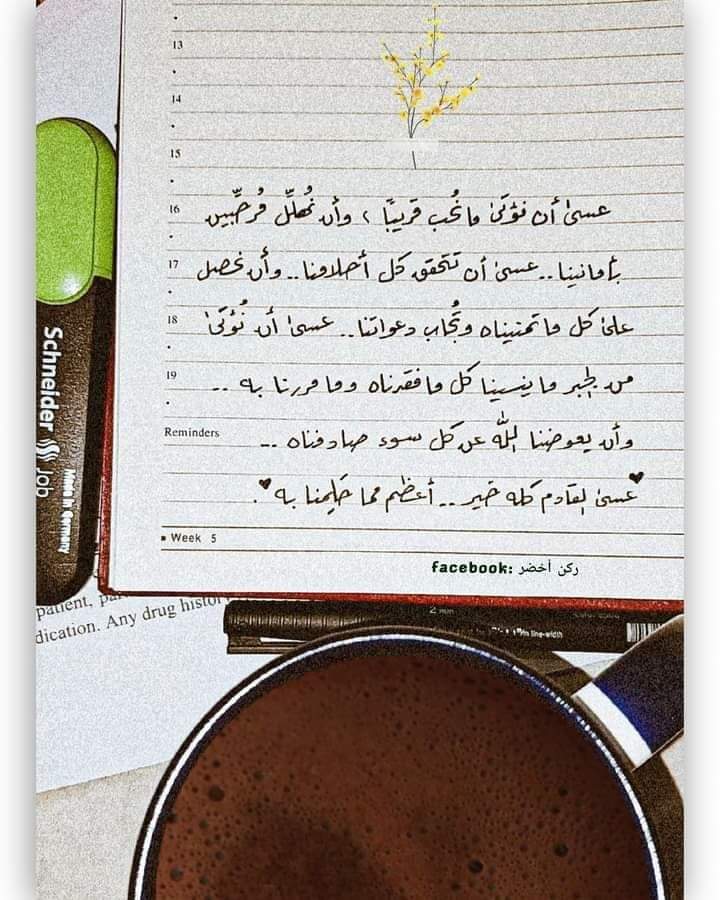 13
14
15
16
عسىٰ أن نؤتىٰ ما نُحب قريبًا ، وأن نُهلِّل مُرحِّبين
17
بأمانينا .. عسىٰ أن تتحقق كل أحلامنا .. وأن نحصل
18
علىٰ كل ما تمنيناه وتُجاب دعواتنا .. عسىٰ أن نُؤتىٰ
19
من الجبر ما ينسينا كل ما فقدناه وما مررنا به ..
Reminders
وأن يعوضنا اللّٰه عن كل سوء صادفناه ..
عسىٰ القادم كله خير .. أعظم مما حَلِمنا به .
Week 5
facebook: ركن أخضر
Schneider
Job
Made in Germany
patient,
dication. Any drug history
2 mm
line-width